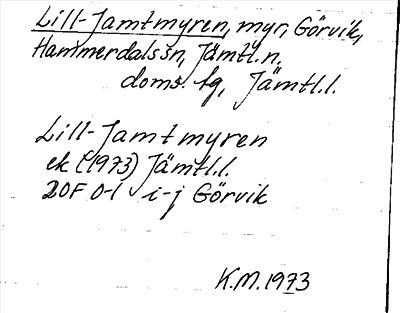 Lill-Jamtmyren, myr, Görvik,
Hammerdals sn, Jämtl. n.
doms. tg, Jämtl. l.
Lill-Jamtmyren
ek (1973) Jämtl. l.
20F 0-1 i-j Görvik
K.M. 1973